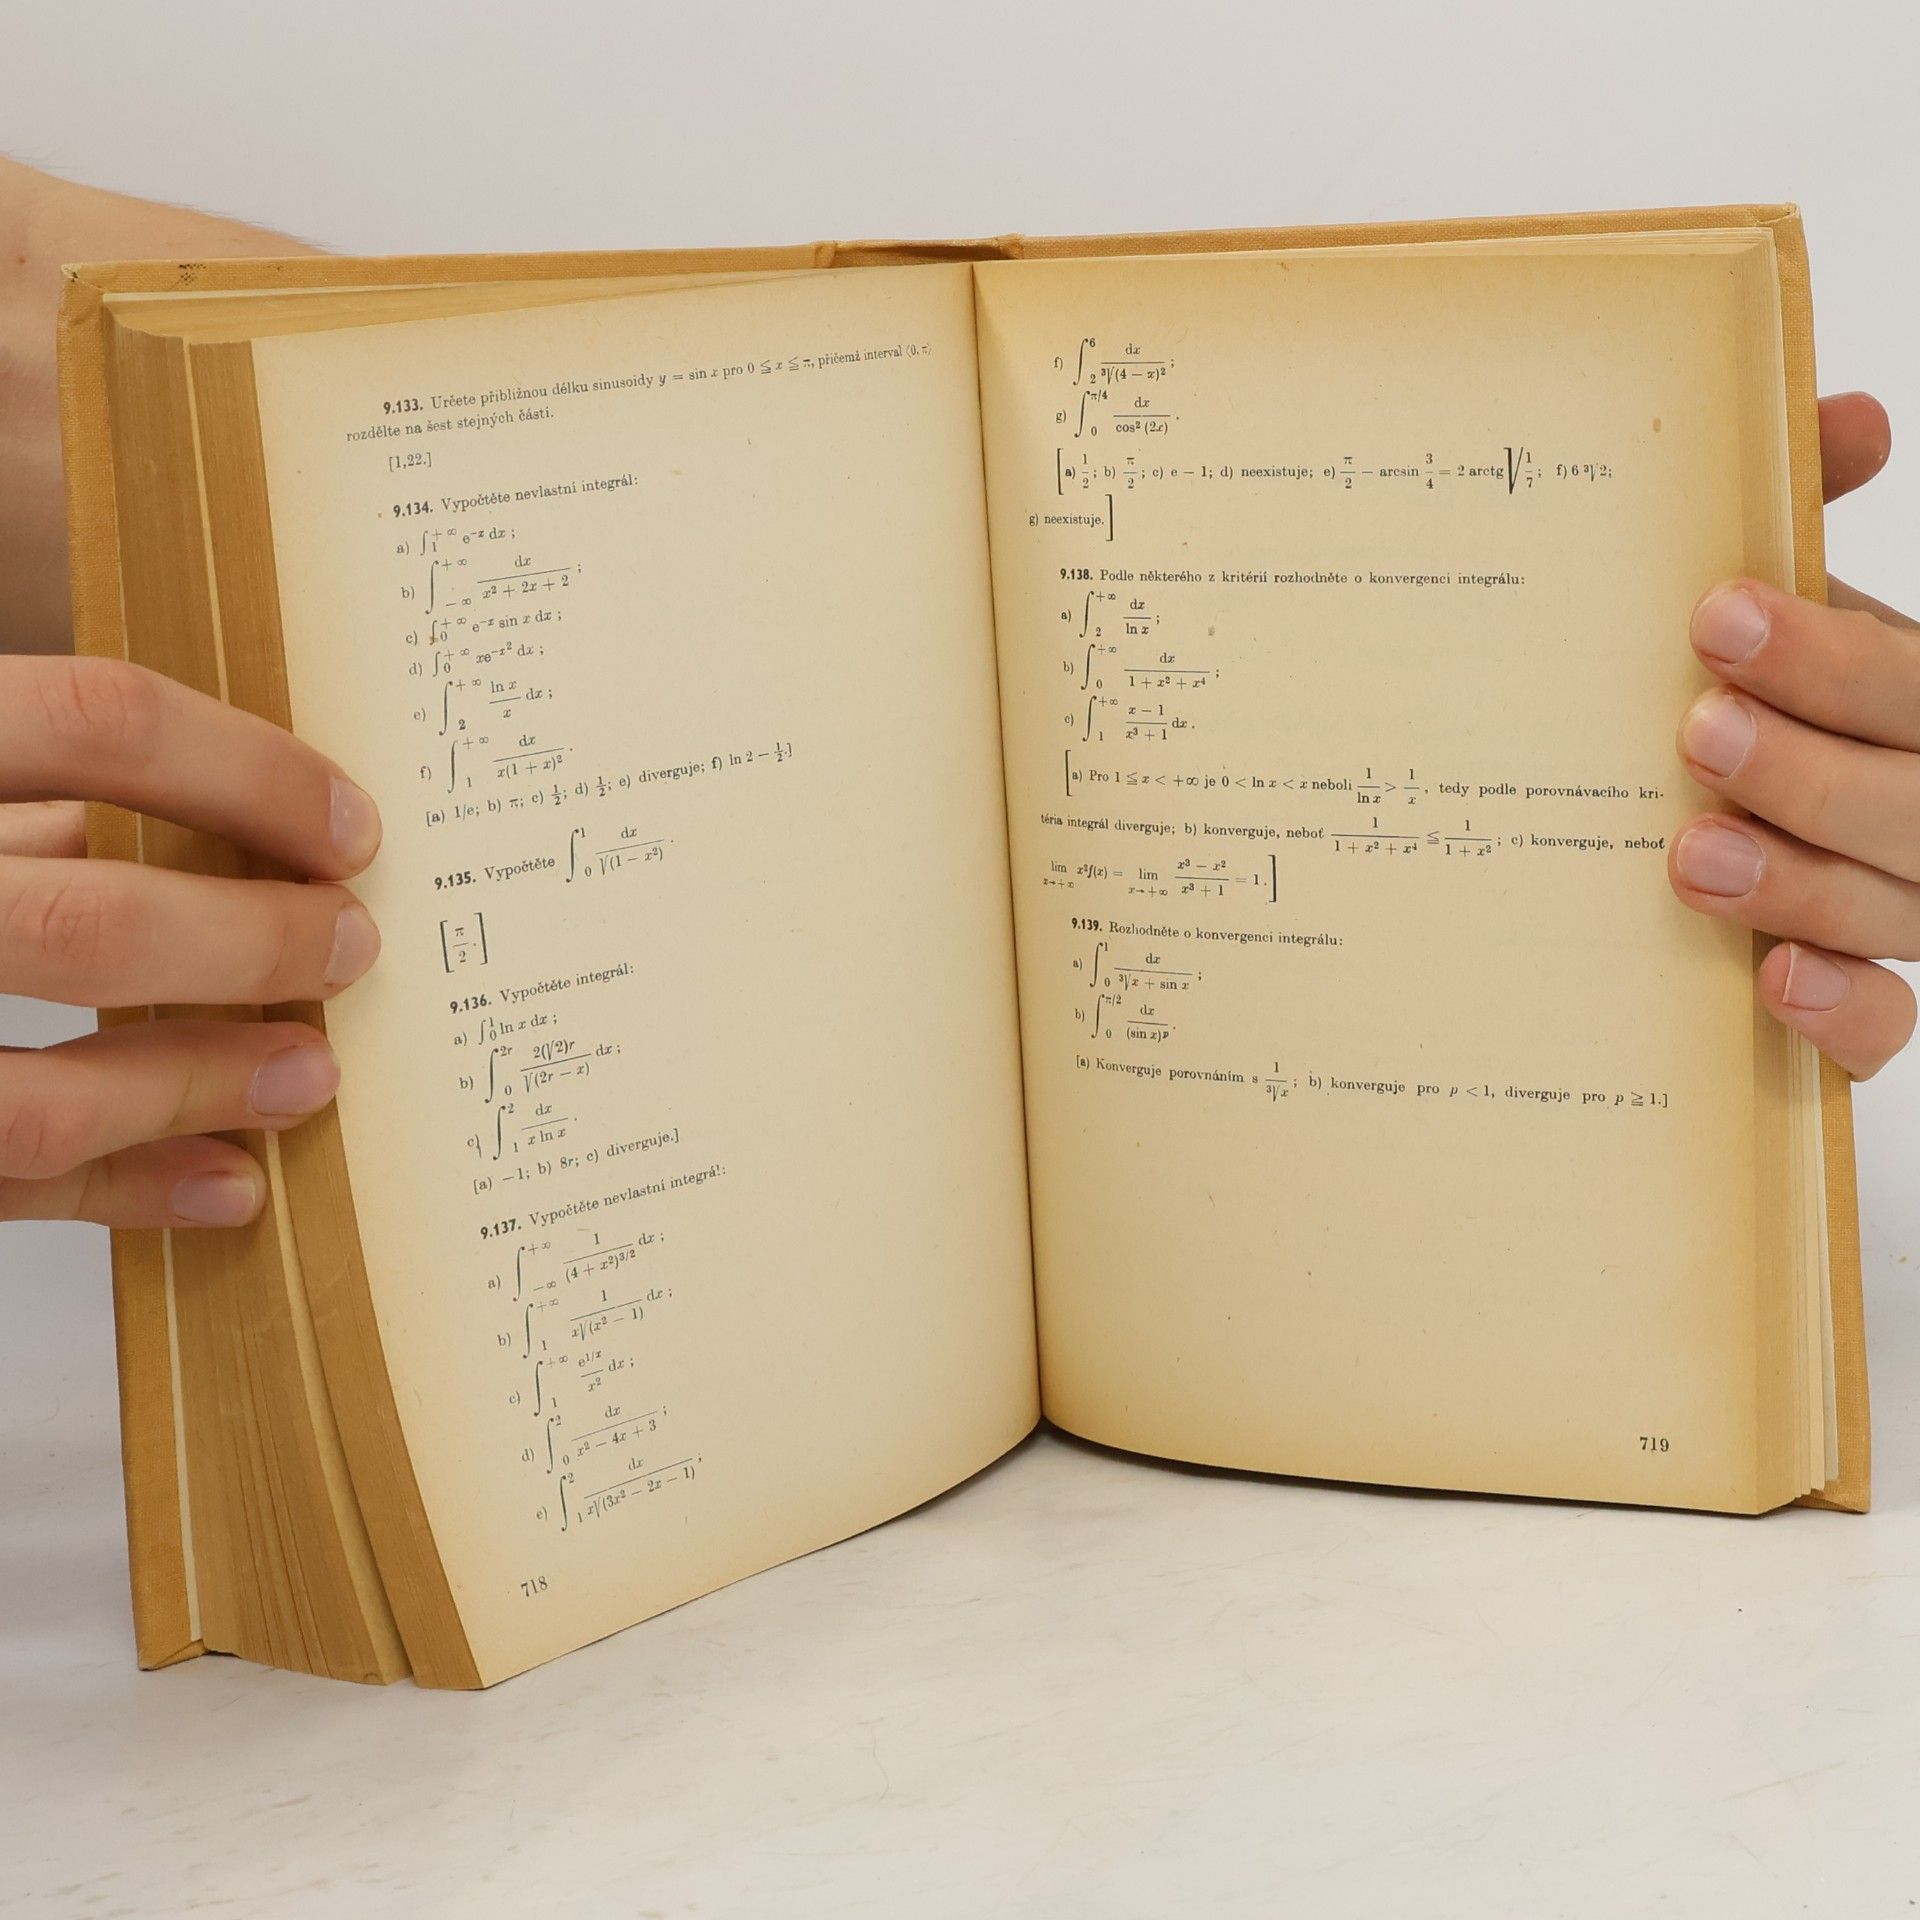 9.133. Určete přibližnou délku sinusoidy y = sin x pro 0 ≦ x ≦ π, přičemž interval ⟨0, π⟩
rozdělte na šest stejných částí.
[1,22.]
9.134. Vypočtěte nevlastní integrál:
a) ∫₁^{+∞} e^{−x} dx ;
b) ∫_{−∞}^{+∞} dx / (x² + 2x + 2) ;
c) ∫₀^{+∞} e^{−x} sin x dx ;
d) ∫₀^{+∞} xe^{−x²} dx ;
e) ∫₂^{+∞} (ln x / x) dx ;
f) ∫₁^{+∞} dx / (x(1 + x)²) .
[a) 1/e; b) π; c) 1/2; d) 1/2; e) diverguje; f) ln 2 − 1/2.]
9.135. Vypočtěte ∫₀^1 dx / √(1 − x²) .
[π/2 .]
9.136. Vypočtěte integrál:
a) ∫₀^1 ln x dx ;
b) ∫₀^{2r} (2(√2)r / √(2r − x)) dx ;
c) ∫₁^2 dx / (x ln x) .
[a) −1; b) 8r; c) diverguje.]
9.137. Vypočtěte nevlastní integrál:
a) ∫_{−∞}^{+∞} 1 / (4 + x²)^{3/2} dx ;
b) ∫₁^{+∞} 1 / (x√(x² − 1)) dx ;
c) ∫₁^{+∞} (e^{1/x} / x²) dx ;
d) ∫₀^2 dx / (x² − 4x + 3) ;
e) ∫₁^2 dx / (x√(3x² − 2x − 1)) ;
718
f) ∫₂^6 dx / ³√(4 − x)² ;
g) ∫₀^{π/4} dx / cos² (2x) .
[a) 1/2; b) π/2; c) e − 1; d) neexistuje; e) π/2 − arcsin 3/4 = 2 arctg √(1/7); f) 6 ³√2;
g) neexistuje.]
9.138. Podle některého z kritérií rozhodněte o konvergenci integrálu:
a) ∫₂^{+∞} dx / ln x ;
b) ∫₀^{+∞} dx / (1 + x² + x⁴) ;
c) ∫₁^{+∞} (x − 1) / (x³ + 1) dx .
[a) Pro 1 ≦ x < +∞ je 0 < ln x < x neboli 1/ln x > 1/x , tedy podle porovnávacího kri-
téria integrál diverguje; b) konverguje, neboť 1 / (1 + x² + x⁴) ≦ 1 / (1 + x²) ; c) konverguje, neboť
lim_{x→+∞} x²f(x) = lim_{x→+∞} (x³ − x²) / (x³ + 1) = 1 .]
9.139. Rozhodněte o konvergenci integrálu:
a) ∫₀^1 dx / (³√x + sin x) ;
b) ∫₀^{π/2} dx / (sin x)^p .
[a) Konverguje porovnáním s 1 / ³√x ; b) konverguje pro p < 1, diverguje pro p ≧ 1.]
719